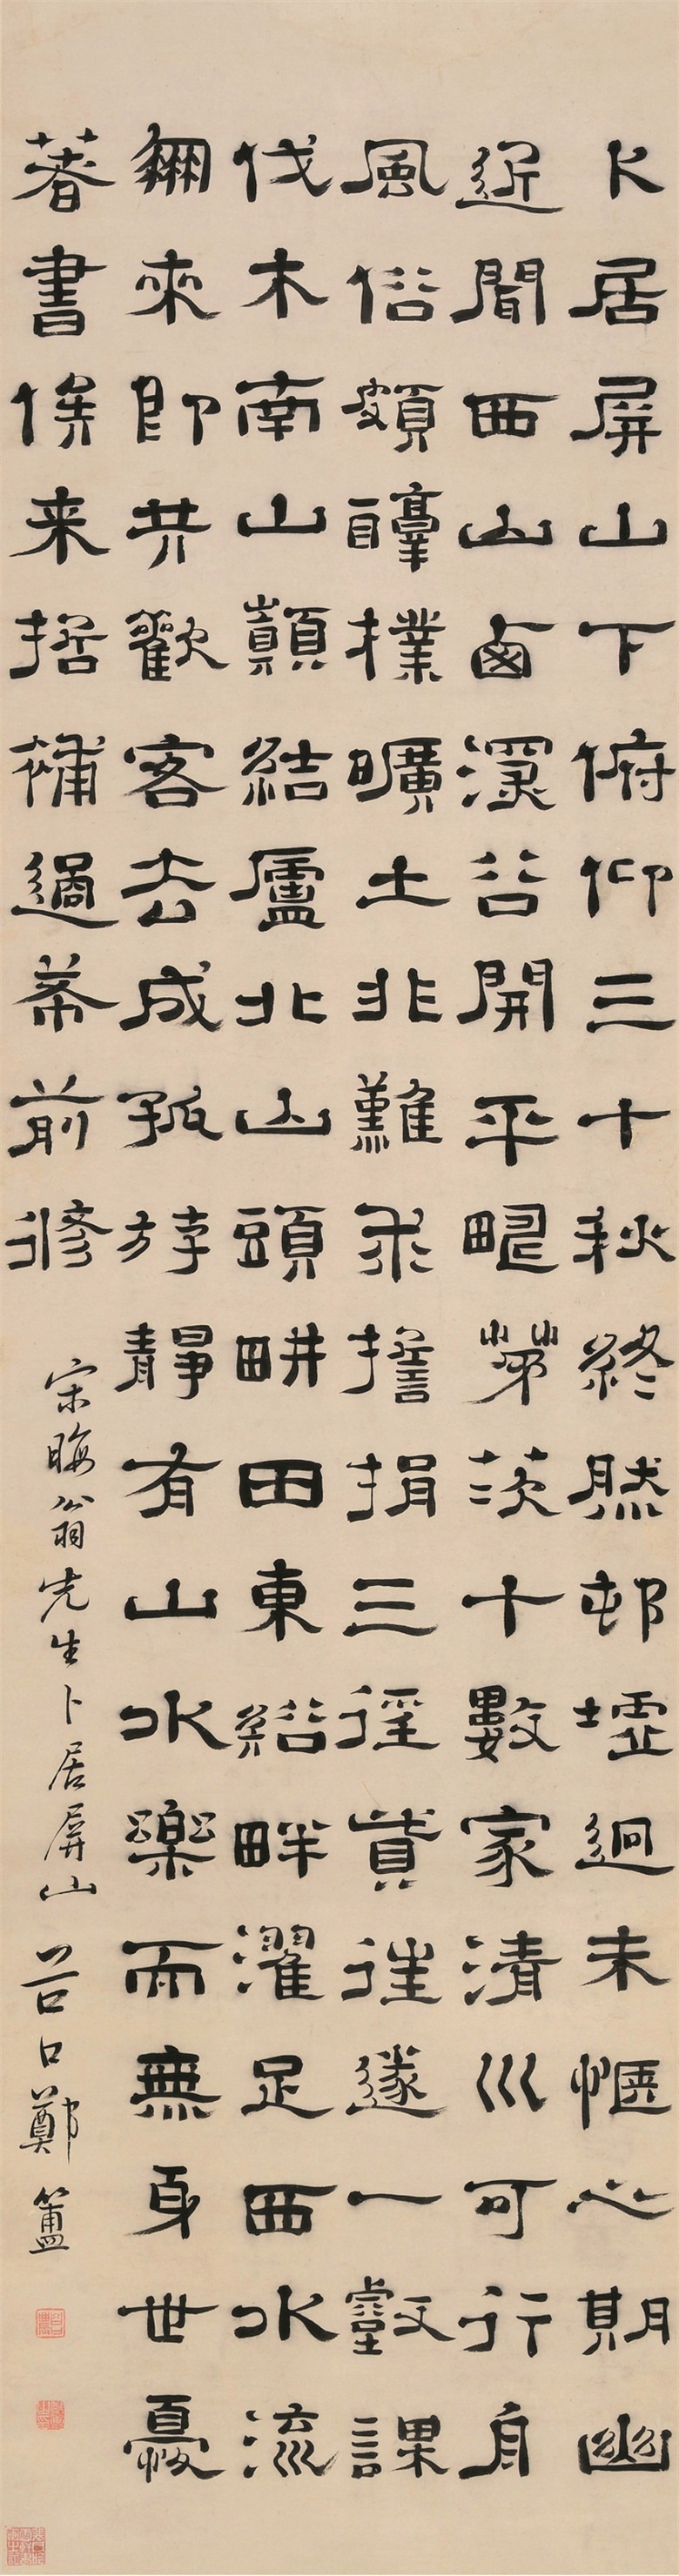 卜居屏山下俯仰三十秋終然邨墟迥未愜心期幽
近聞西山鹵深谷開平疇茅茨十數家清川可行舟
風俗頗醇樸曠土非難求誓捐三徑貲往遂一壑課
伐木南山巔結廬北山頭畊田東谿畔濯足西水流
朋來即共歡客去成孤游靜有山水樂而無身世憂
著書俟来哲補過希前修
宋晦翁先生卜居屏山 谷口鄭簠